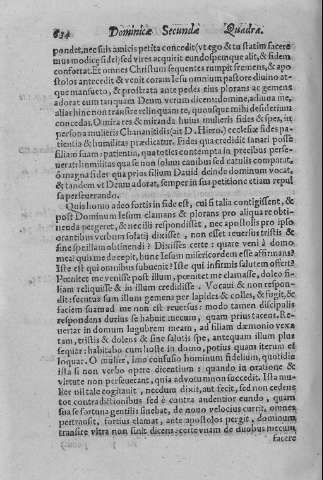 634 Dominicæ Secundæ Quadra.
pondet, nec suis amicis petita concedit (vt ego & tu statim facere
mus modicę fidei) sed vires acquirit eundo semper alit, & fidem
confortat. Et omnes Christum sequentes rumpit fremens, & apo
stolos antecedit & venit coram Iesu omnium pastore diuino at-
que mansueto, & prostrata ante pedes eius plorans ac gemens
adorat eum tanquam Deum verum dicent: domine, adiuua me,
alias hinc non transire relinquam te, quousque mihi desideriũ
concedas. Dimitares & miranda huius mulieris fides & spes, in
persona mulieris Chananitidis (ait D. Hiero.) ecclesiæ fides pa-
tientia & humilitas prædicatur. Fides qua credidit sanari posse
filiam suam: patientia, qua toties contempta in precibus perse-
uerat: humilitas qua se non solum canibus sed catulis comparat.
ô magna fides quæ prius filium Dauid deinde dominum vocat,
& tandem vt Deum adorat, semper in sua petitione etiam repul
sa perseuerando.
Quis homo adeo fortis in fide est, cui si talia contigissent, &
post Dominum Iesum clamans & plorans pro aliqua re obti-
nenda pergeret, & nec illi respondisset, nec apostolis pro ipso
orantibus verbum solatij dixisset, non esset reuersus tristis &
sine spe illam obtinendi? Dixisses certe: quare veni à domo
mea: quis me decepit, hunc Iesum misericordem esse affirmans?
Iste est qui omnibus subuenit? Iste qui infirmis salutem offert?
Pœnitet me venisse post illum, pœnitet me clamasse, doleo fi-
liam reliquisse & in illum credidisse. Vocaui & non respon-
dit: secutus sum illum gemens per lapides & colles, & fugit, &
faciem suam ad me non est reuersus: modo tamen discipulis
respondens durius se habuit mecum, quam prius tacens. Re-
uertar in domum lugubrem meam, ad filiam dæmonio vexa
tam, tristis & dolens & sine salutis spe, antequam illum plus
sequar: habitabo cum hoste in domo, potius quam iterum ei
loquar. O mulier, imo confusio hominum fidelium, quotidie
ista si non verbo opere dicentium: quando in oratione &
virtute non perseuerant, quia ad vocem non succedit. Ista mu
lier nil tale cogitauit, necdum dixit, aut fecit, sed non cedens
tot contradictionibus sed è contra audentior eundo, quam
sua se fortuna gentilis sinebat, de nouo velocius currit, omnes
pertransit, fortius clamat, ante apostolos pergit, dominum
transire vltra non sinit dicens: certe vnam de duobus mecum
facere